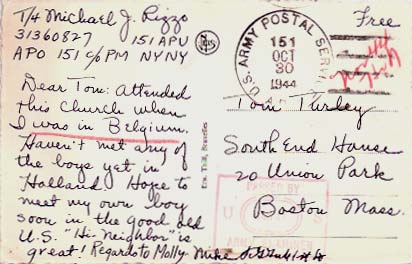 T/4 Michael J. Rizzo
31360827 151 APU
APO 151 c/o PM NY NY
Dear Tom: Attended
this Church when
I was in Belgium.
Haven't met any of
the boys yet in
Holland Hope to
meet my own boy
soon in the good old
U.S. "Hi-Neighbor" is
great! Regards to Molly. Mike
Ern. Thill, Bruxelles
U.S. ARMY POSTAL SERVICE
151
OCT
30
1944
Free
Tom
South End House
20 Union Park
Boston Mass.
PASSED BY
U S
ARMY EXAMINER